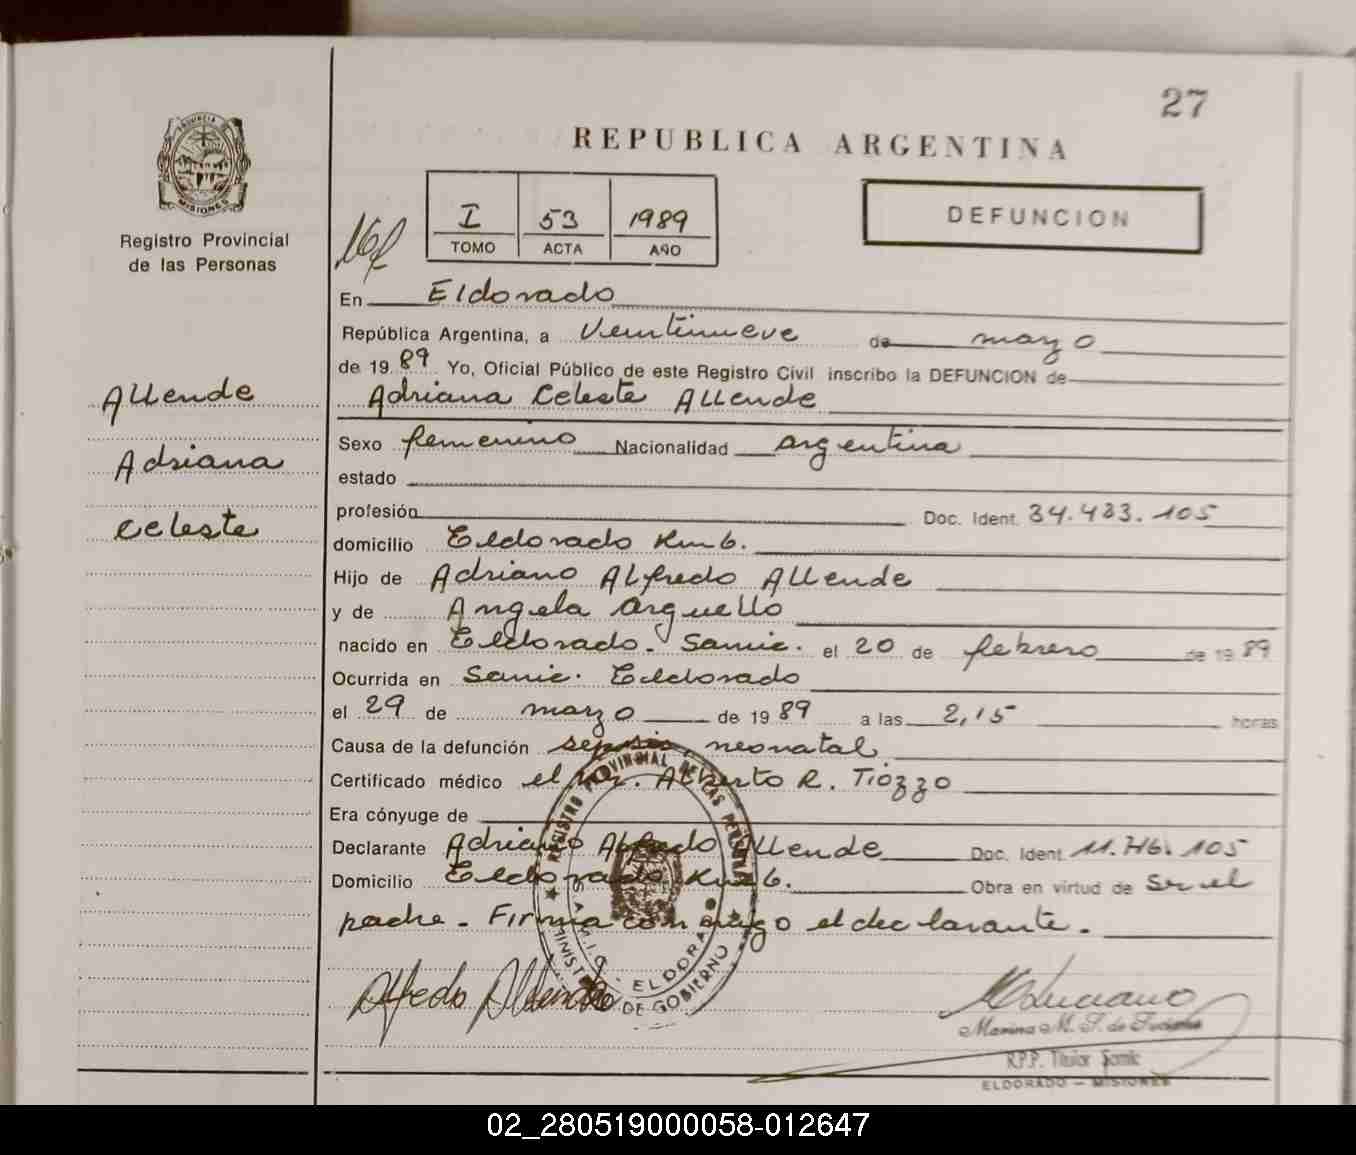 27
REPUBLICA ARGENTINA
PROVINCIA DE
MISIONES
Registro Provincial
de las Personas
I 53 1989
TOMO ACTA AÑO
DEFUNCION
En Eldorado
República Argentina, a veintinueve de marzo
de 1989 Yo, Oficial Público de este Registro Civil inscribo la DEFUNCION de
Allende
Adriana Celeste Allende
Sexo femenino Nacionalidad argentina
Adriana
estado
profesión Doc. Ident. 34.433.105
Celeste
domicilio Eldorado Km 6.
Hijo de Adriano Alfredo Allende
y de Angela Arguello
nacido en Eldorado. Samic. el 20 de febrero de 1989
Ocurrida en Samic. Eldorado
el 29 de marzo de 1989 a las 2,15 horas
Causa de la defunción sepsis neonatal
Certificado médico el Dr. Alberto R. Tiozzo
Era cónyuge de
Declarante Adriano Alfredo Allende Doc. Ident 11.716.105
Domicilio Eldorado Km 6. Obra en virtud de Ser el
padre. Firma conmigo el declarante.
REGISTRO PROVINCIAL DE LAS PERSONAS
SAMIC. ELDORADO
MINISTERIO DE GOBIERNO
Alfredo Allende
Luciano
Marina M. S. de Luciano
R.P.P. Titular Samic
ELDORADO - MISIONES
02_280519000058-012647